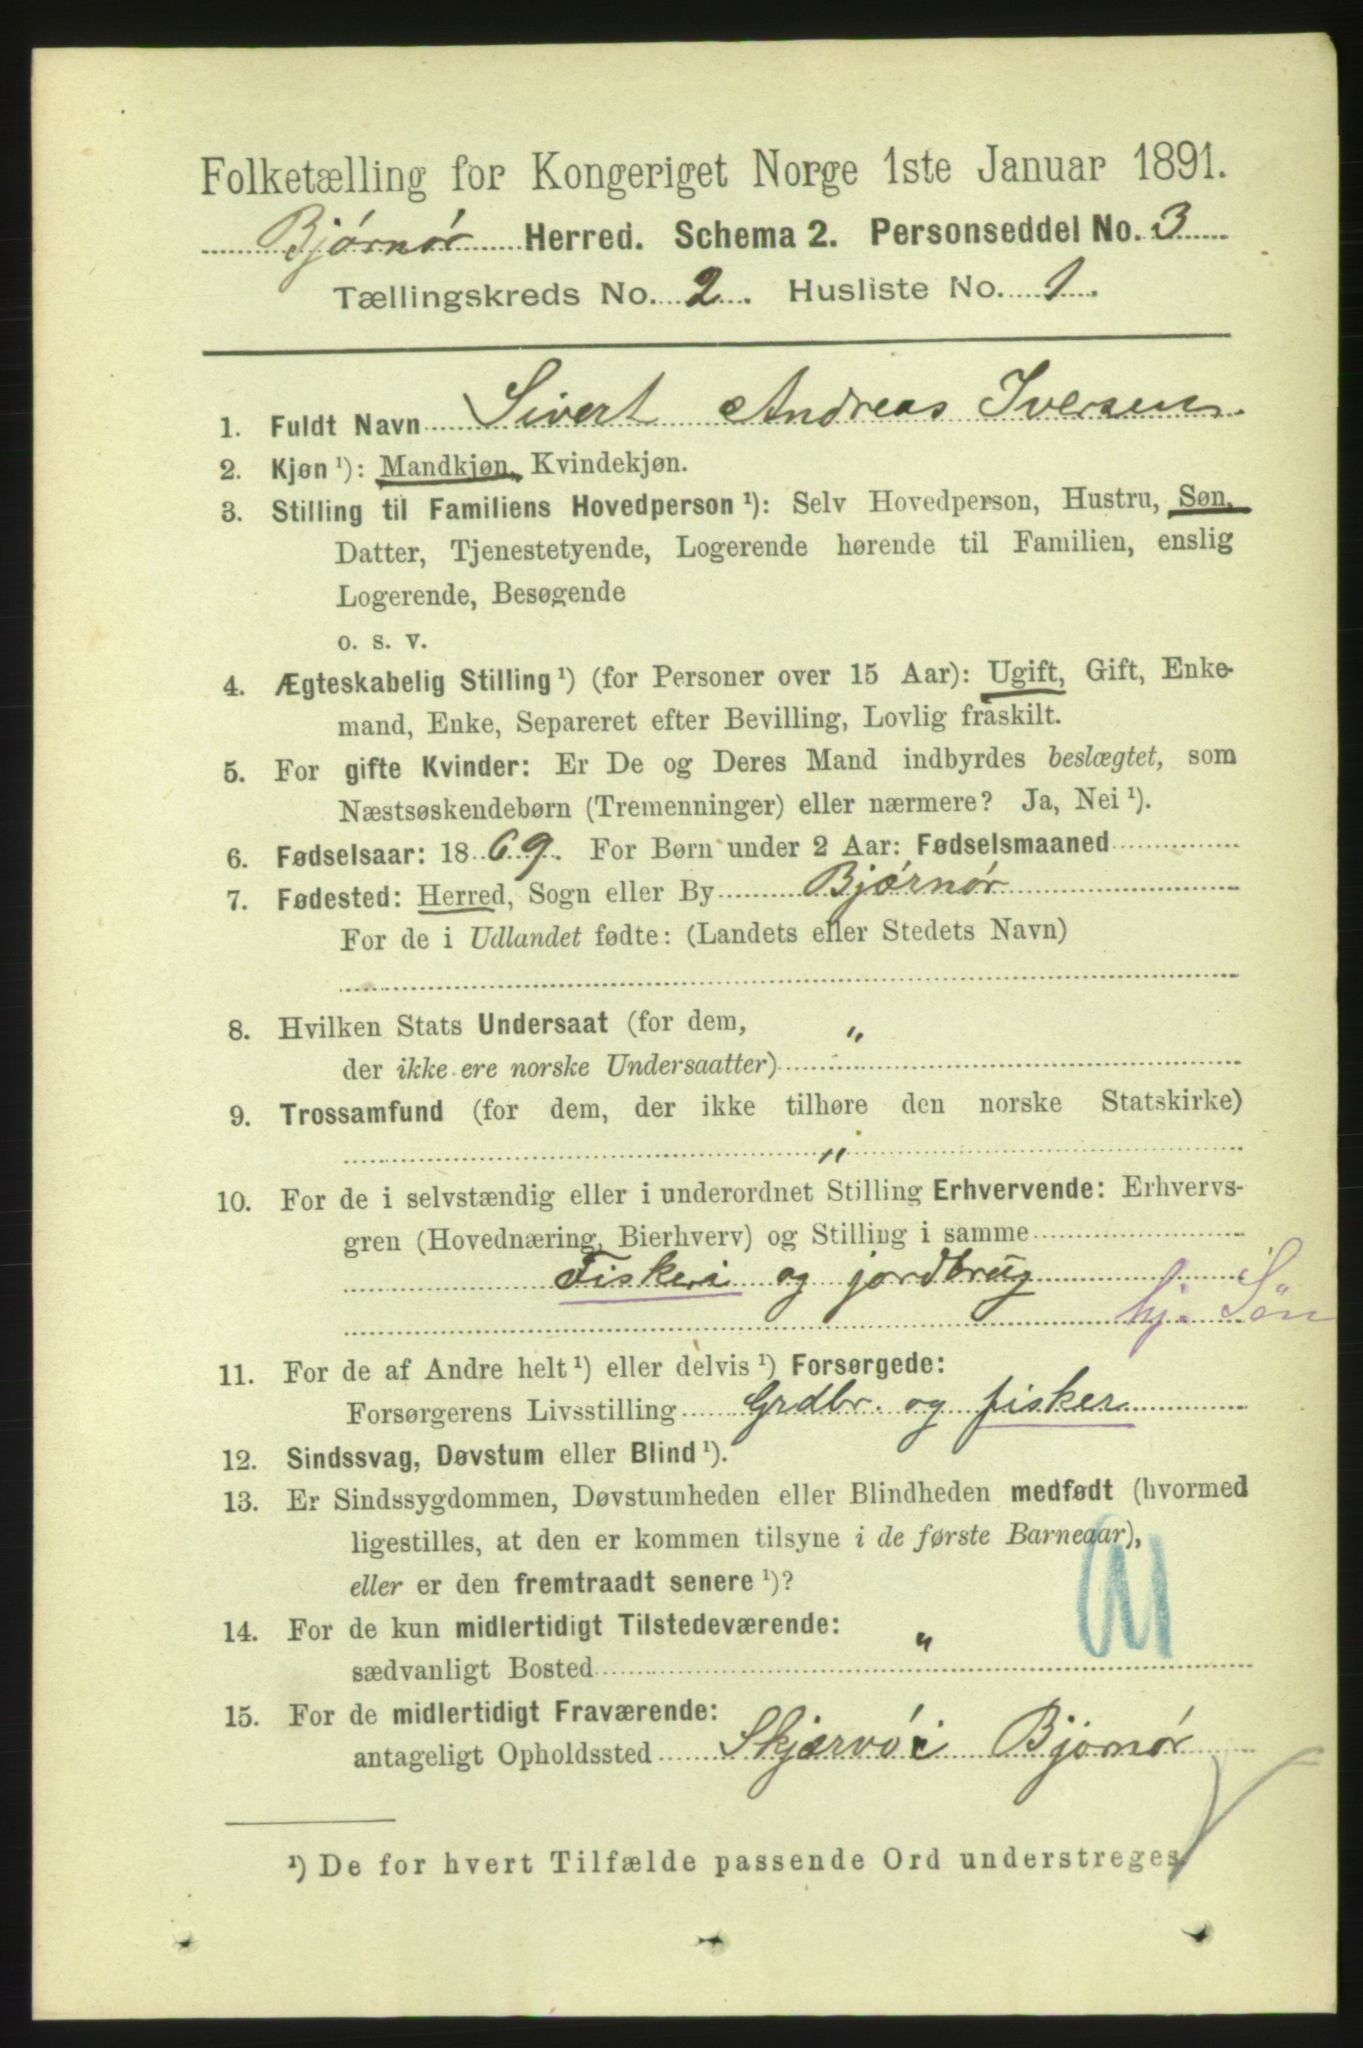 Folketælling for Kongeriget Norge 1ste Januar 1891.
Bjørnør Herred. Schema 2. Personseddel No. 3
Tællingskreds No. 2. Husliste No. 1.
1. Fuldt Navn Sivert Andreas Iversen.
2. Kjøn ¹): Mandkjøn, Kvindekjøn.
3. Stilling til Familiens Hovedperson ¹): Selv Hovedperson, Hustru, Søn,
Datter, Tjenestetyende, Logerende hørende til Familien, enslig
Logerende, Besøgende
o. s. v.
4. Ægteskabelig Stilling ¹) (for Personer over 15 Aar): Ugift, Gift, Enke-
mand, Enke, Separeret efter Bevilling, Lovlig fraskilt.
5. For gifte Kvinder: Er De og Deres Mand indbyrdes beslægtet, som
Næstsøskendebørn (Tremenninger) eller nærmere? Ja, Nei ¹).
6. Fødselsaar: 1869. For Børn under 2 Aar: Fødselsmaaned
7. Fødested: Herred, Sogn eller By Bjørnør
For de i Udlandet fødte: (Landets eller Stedets Navn)
8. Hvilken Stats Undersaat (for dem, "
der ikke ere norske Undersaatter)
9. Trossamfund (for dem, der ikke tilhøre den norske Statskirke)
"
10. For de i selvstændig eller i underordnet Stilling Erhvervende: Erhvervs-
gren (Hovednæring, Bierhverv) og Stilling i samme
Fiskeri og jordbrug
hj. Søn
11. For de af Andre helt ¹) eller delvis ¹) Forsørgede:
Forsørgerens Livsstilling Grdbr. og fisker
12. Sindssvag, Døvstum eller Blind ¹).
13. Er Sindssygdommen, Døvstumheden eller Blindheden medfødt (hvormed
ligestilles, at den er kommen tilsyne i de første Barneaar),
eller er den fremtraadt senere ¹)?
14. For de kun midlertidigt Tilstedeværende: "
sædvanligt Bosted
15. For de midlertidigt Fraværende:
antageligt Opholdssted Skjærvø i Bjørnør
¹) De for hvert Tilfælde passende Ord understreges.